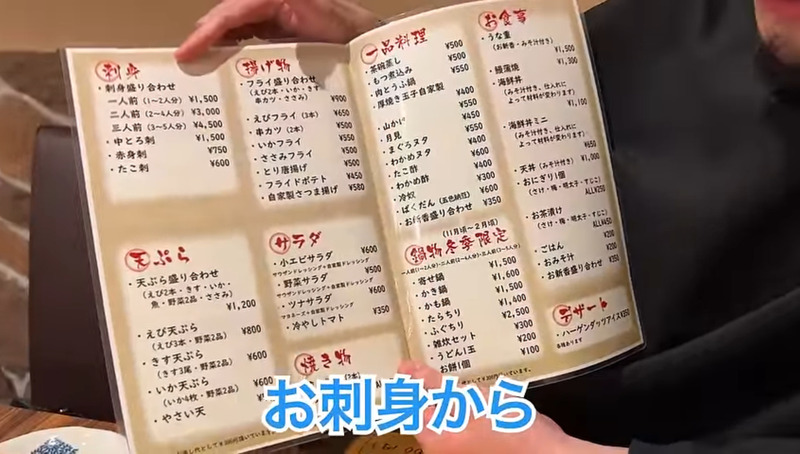 刺身
・刺身盛り合わせ
一人前(1〜2人分) ¥1,500
二人前(2〜4人分) ¥3,000
三人前(3〜5人分) ¥4,500
・中とろ刺 ¥1,500
・赤身刺 ¥750
・たこ刺 ¥600
天ぷら
・天ぷら盛り合わせ
(えび2本・いか・きす・
魚・野菜2品・ささみ)
¥1,200
・えび天ぷら ¥800
(えび3本・野菜2品)
・きす天ぷら ¥600
(きす3尾・野菜2品)
・いか天ぷら ¥600
(いか4枚・野菜2品)
・やさい天
揚げ物
・フライ盛り合わせ
(えび2本・いか・きす
串カツ・ささみ) ¥900
・えびフライ(3本) ¥650
・串カツ(2本) ¥500
・いかフライ ¥500
・ささみフライ ¥500
・とり唐揚げ ¥500
・フライドポテト ¥450
・自家製さつま揚げ ¥580
サラダ
・小エビサラダ ¥600
サウザンドレッシング+自家製ドレッシング
・野菜サラダ ¥500
サウザンドレッシング+自家製ドレッシング
・ツナサラダ ¥600
マヨネーズ+自家製ドレッシング
・冷やしトマト ¥350
焼き物
一品料理
・茶碗蒸し ¥500
・もつ煮込み ¥500
・肉とうふ鍋 ¥550
・厚焼き玉子自家製 ¥400
・山かけ ¥550
・月見 ¥400
・まぐろヌタ ¥550
・わかめヌタ ¥400
・たこ酢 ¥400
・わかめ酢 ¥300
・冷奴
・ばくだん(五色納豆) ¥600
・お新香盛り合わせ ¥350
(11月頃〜2月頃)
鍋物冬季限定
・寄せ鍋 ¥1,500
・かき鍋 ¥1,600
・かも鍋 ¥1,500
・たらちり ¥1,400
・ふぐちり ¥2,500
・雑炊セット ¥300
・うどん1玉 ¥200
・お餅1個 ¥100
お食事
・うな重
(お新香・みそ汁付き)
¥1,500
・鰻蒲焼 ¥1,300
・海鮮丼
(みそ汁付き、仕入れに
よって材料が変わります)
¥1,100
・海鮮丼ミニ
(みそ汁付き、仕入れに
よって材料が変わります)
¥650
・天丼(みそ汁付き) ¥1,000
・おにぎり1個
(さけ・梅・明太子・すじこ)
ALL¥250
・お茶漬け
(さけ・梅・明太子・すじこ)
ALL¥450
・ごはん ¥200
・おみそ汁 ¥200
・お新香盛り合わせ ¥350
デザート
・ハーゲンダッツアイス¥350
お刺身から